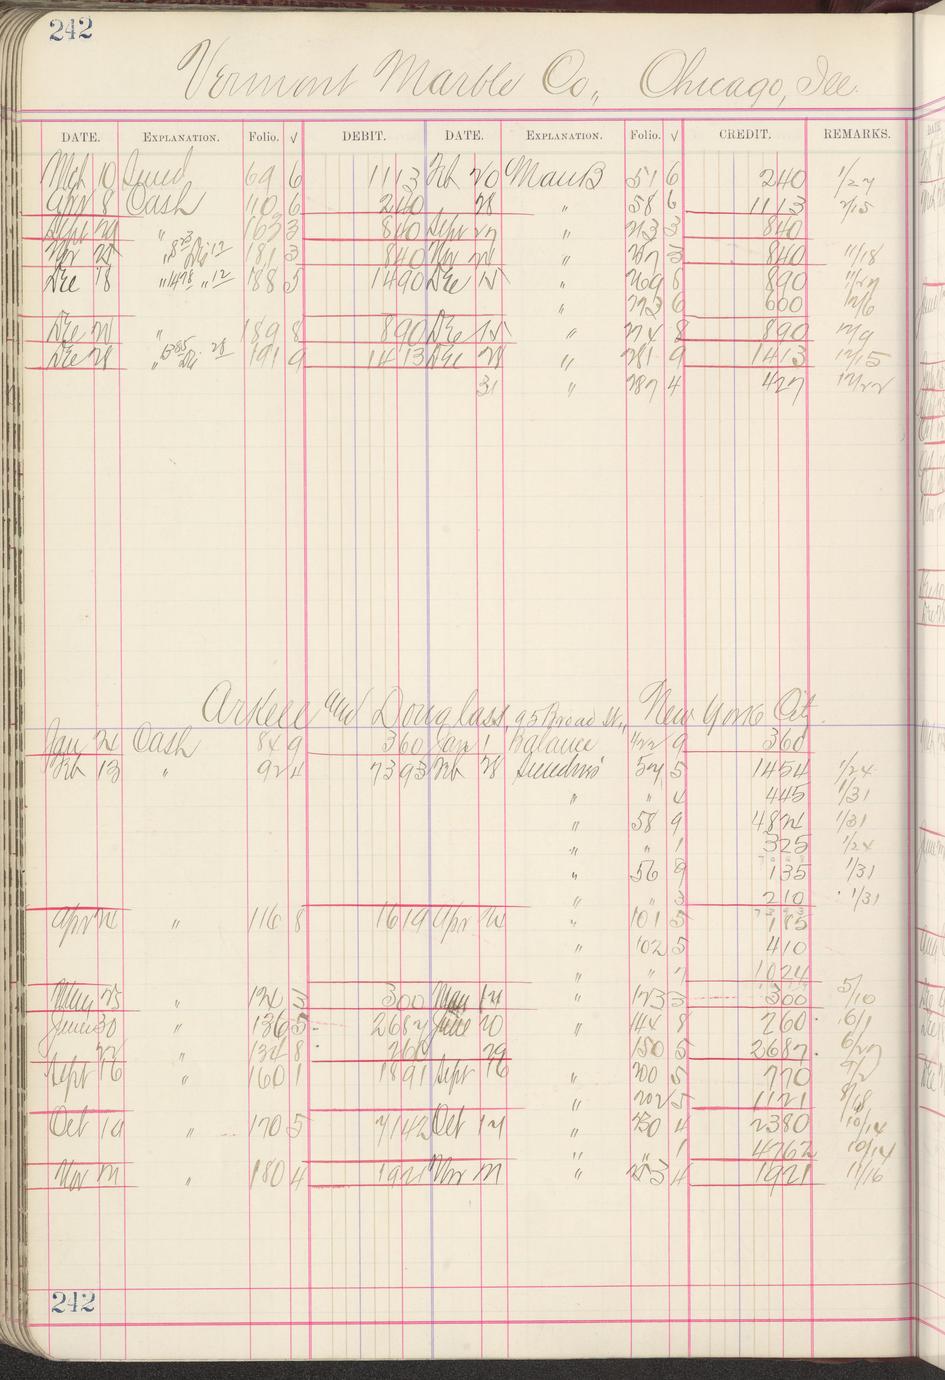 242
Vermont Marble Co., Chicago, Ill.
DATE. EXPLANATION. Folio. √ DEBIT. DATE. EXPLANATION. Folio. √ CREDIT. REMARKS.
Mch 10 69 6 1113 Feb 20 ManB 51 6 240 1/27
Apr 8 Cash 110 6 240 " 28 " 58 6 1113 2/15
Sept 29 " 163 3 840 Sept 27 " 213 3 840
Nov 25 " 181 3 840 Nov 21 " 3 840 11/18
Dec 18 " 188 5 1490 Dec 15 " 269 8 890 11/27
" 273 6 600 12/6
Dec 21 " 189 8 890 Dec 15 " 274 8 890 12/9
Dec 28 " 191 9 1413 Dec 21 " 281 9 1413 12/15
31 " 287 4 427 12/22
Arkell and Douglass, 95 Broad St., New York City
Jan 24 Cash 84 9 360 Jan 1 Balance 422 9 360
Feb 13 " 92 4 7393 Feb 28 Sundries 57 5 1454 1/24
" " 4 445 1/31
" 58 9 4824 1/31
" " 1 325 1/24
" 56 9 135 1/31
" " 3 210 1/31
Apr 24 " 116 8 1619 Apr 24 " 101 5 185
" 102 5 410
" " 7 1024
May 25 " 124 300 May 14 " 123 3 300 5/10
June 30 " 136 5 2687 June 20 " 144 8 260 6/1
22 " 134 8 260 29 150 5 2687 6/27
Sept 16 " 160 1 1891 Sept 16 " 200 5 770 9/2
" 202 5 1121 8/18
Oct 19 " 170 5 7142 Oct 14 " 230 4 2380 10/14
" " 1 4762 10/14
Nov 21 " 180 4 1921 Nov 21 " 253 4 1921 11/16
242